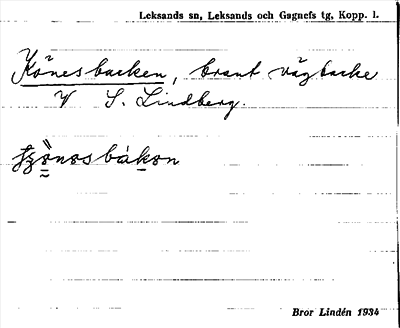 Leksands sn, Leksands och Gagnefs tg, Kopp. l.
Könesbacken, brant vägbacke
V S. Lindberg.
Bror Lindén 1934